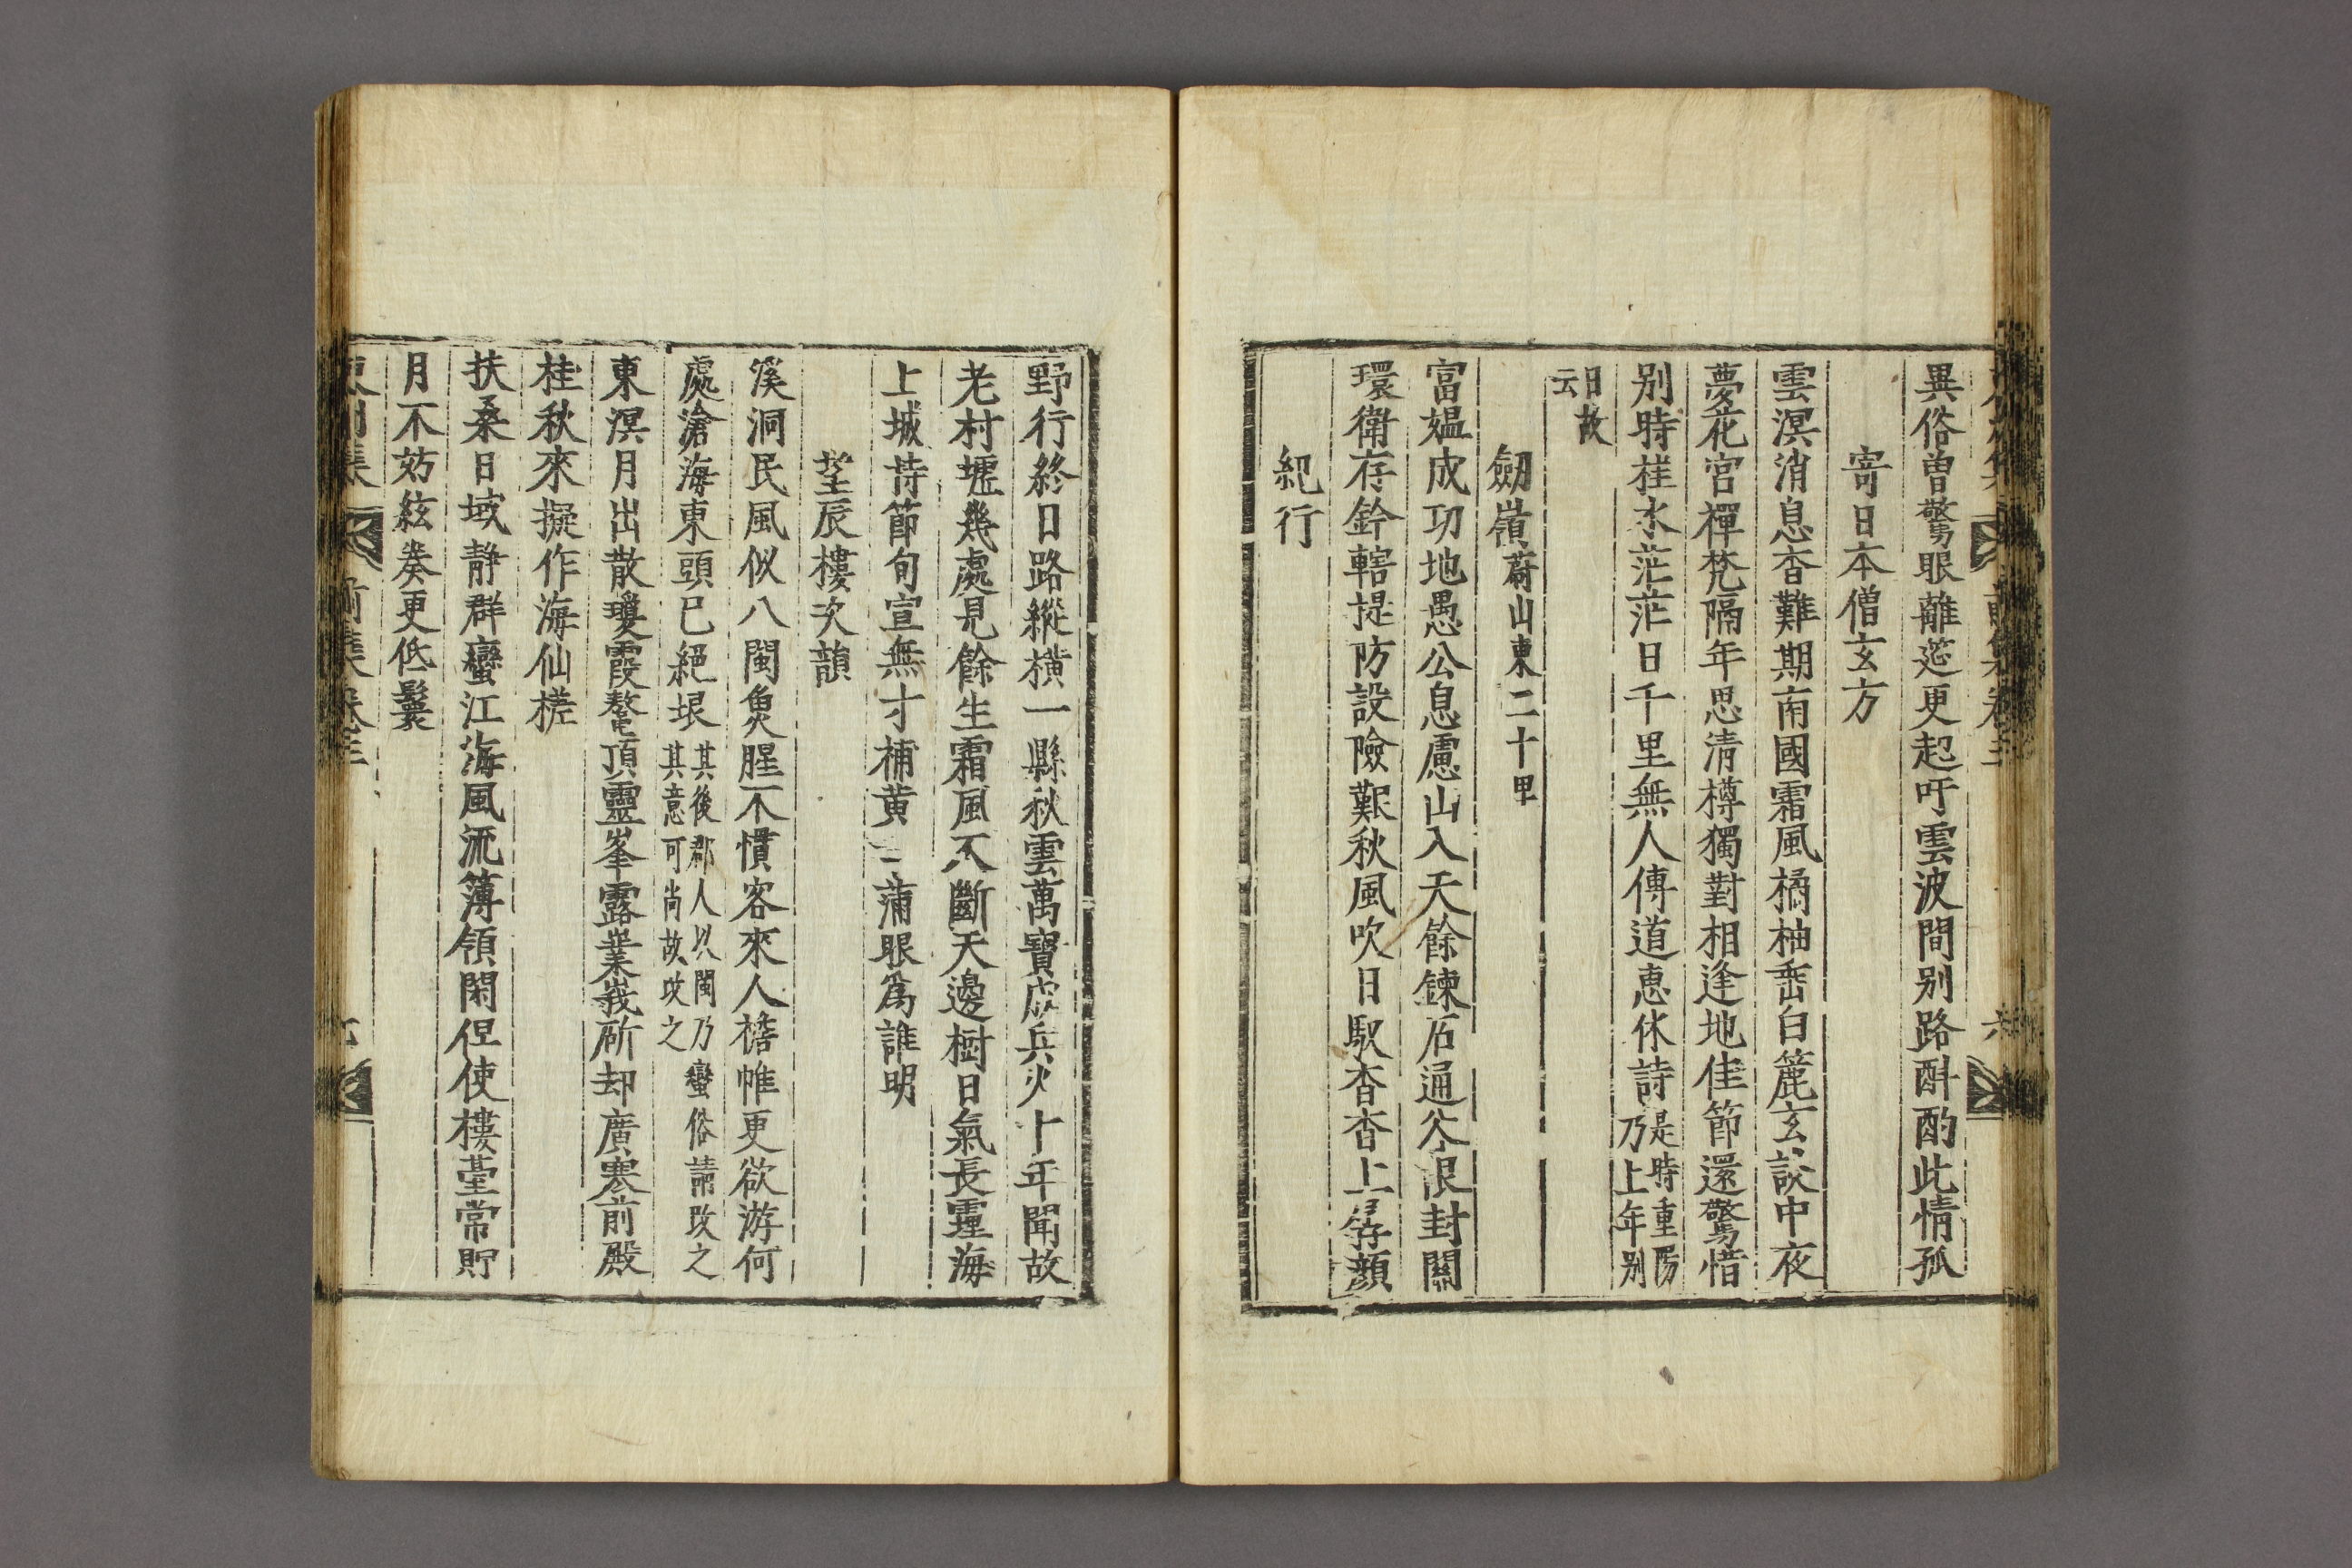 異俗曾驚眼離筵更起吁雲波間别路酙酌此情孤
寄日本僧玄方
雲溟消息杳難期南國霜風橘柚垂白簏玄談中夜
夢花宮禪梵隔年思清樽獨對相逢地佳節還驚惜
别時桂水茫茫日千里無人傳道惠休詩是時重陽乃上年别
日故云
劒嶺蔚山東二十里
富媪成功地愚公息慮山入天餘鍊石通谷限封關
環衛存鈐轄提防設險艱秋風吹日馭杳杳上孱顔
紀行
野行終日路縱橫一縣秋雲萬寶成兵火十年聞故
老村壚幾處見餘生霜風不斷天邊樹日氣長霾海
上城恃節旬宣無寸補黄二蒲眼爲誰明
望辰樓次韻
溪洞民風似八閩魚腥不慣客來人襜帷更欲游何
處滄海東頭已絕垠其後郡人以閩乃蠻俗請改之其意可尚故改之
東溟月出散瓊霞鼇頂靈峯露業峩斫却廣寒前殿
桂秋來擬作海仙槎
扶桑日域靜群蠻江海風流簿領閑但使樓臺常貯
月不妨絃奏更低鬟